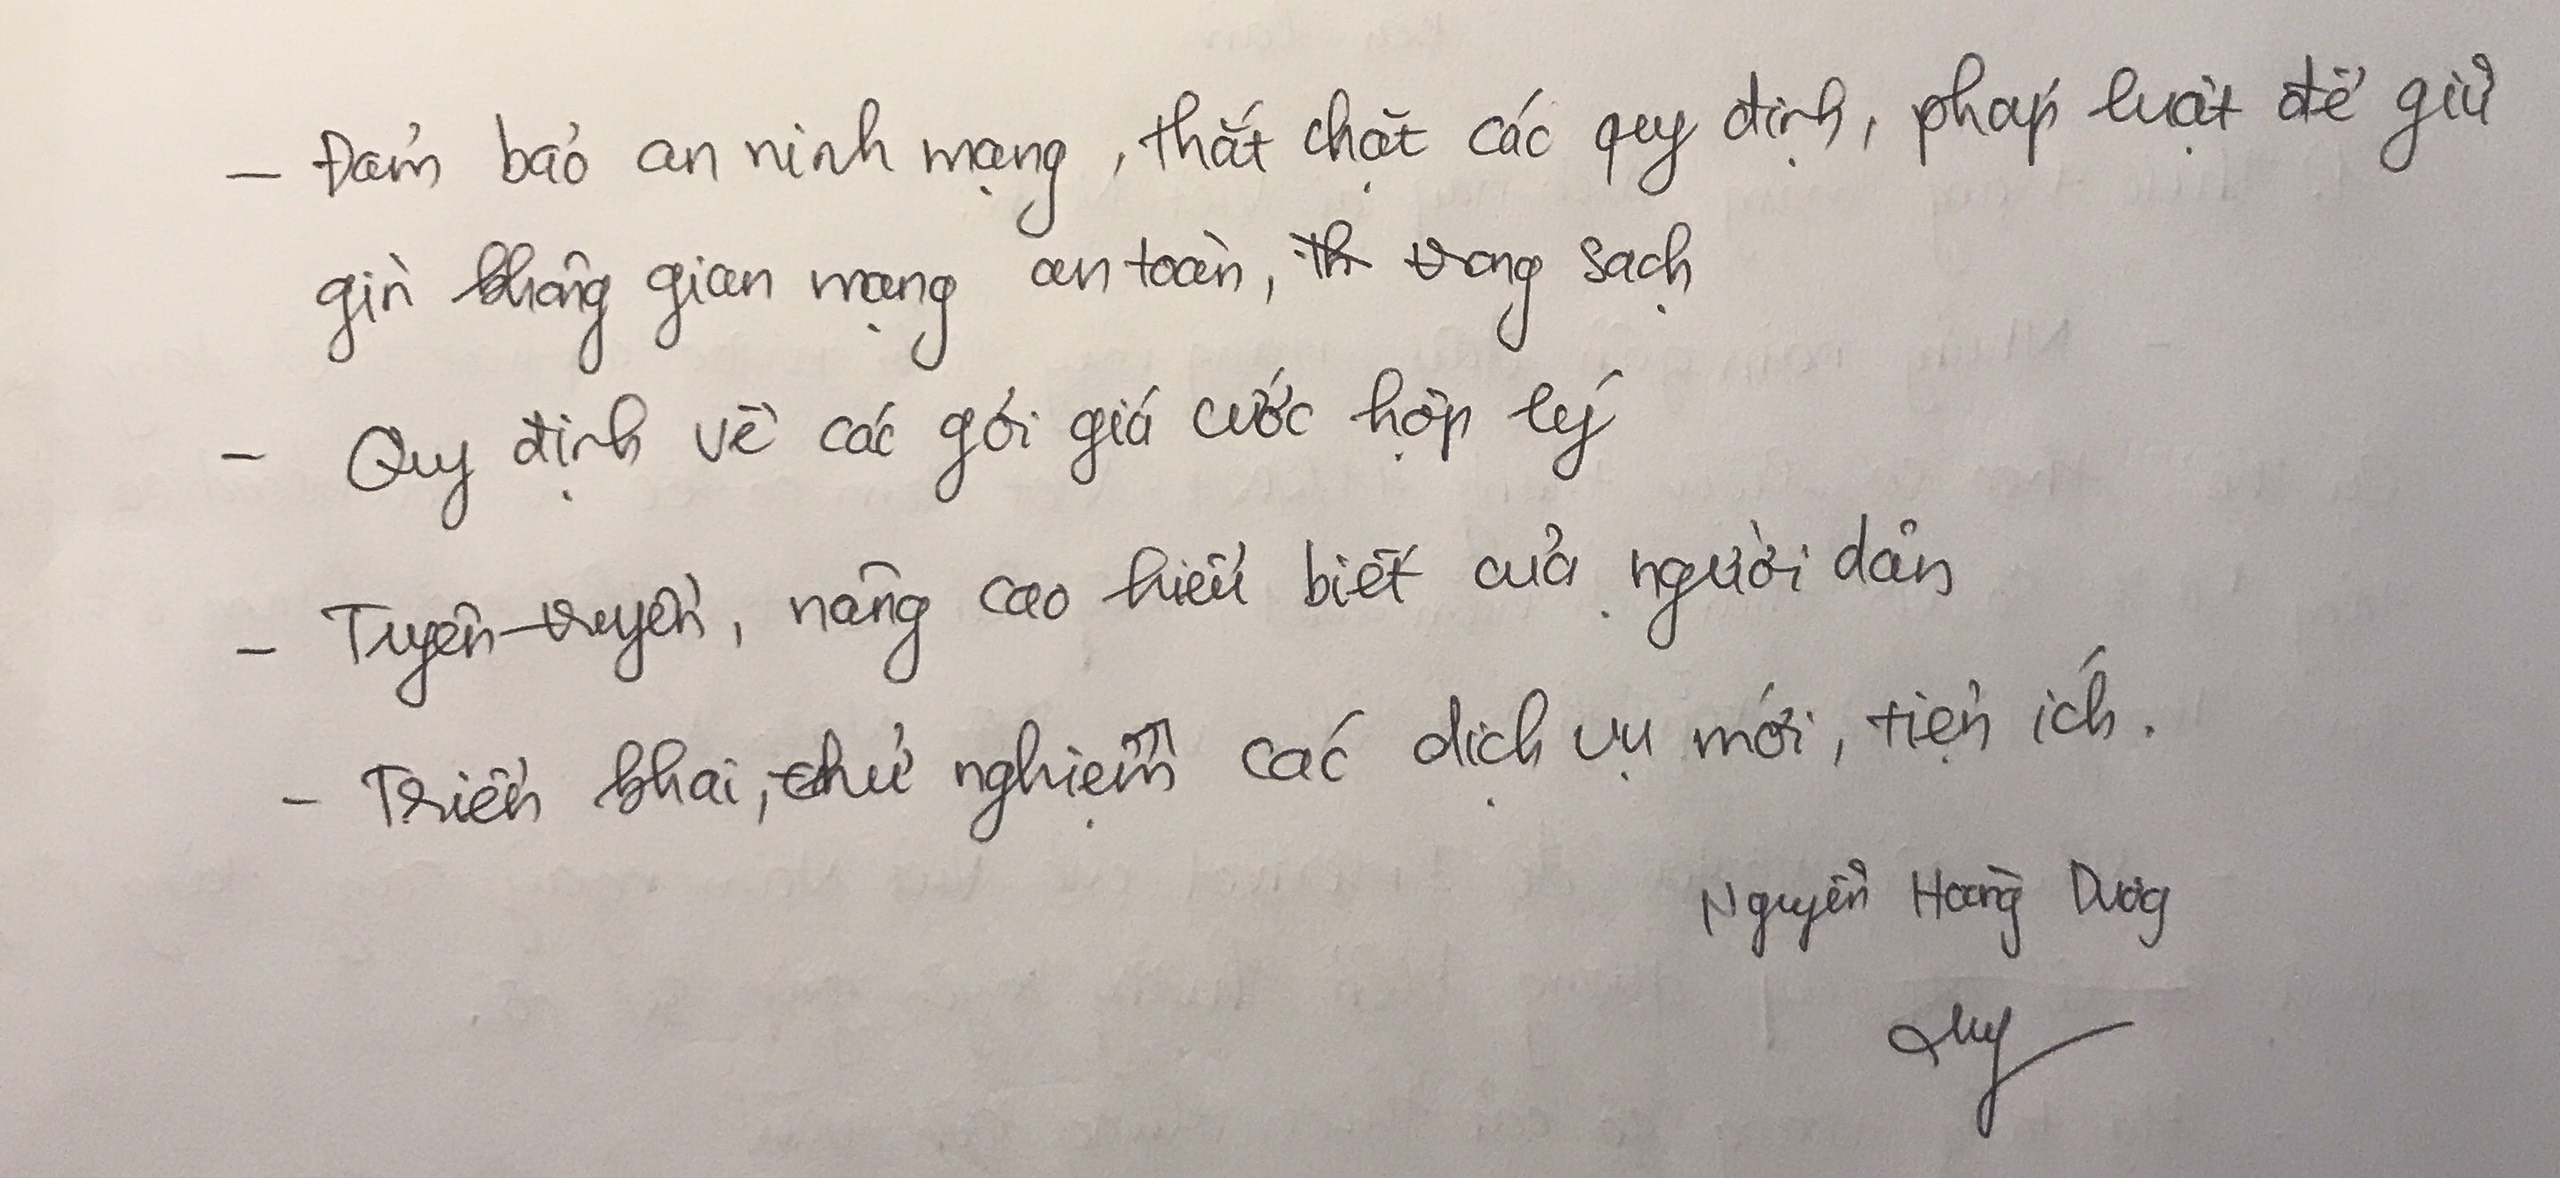 - Đảm bảo an ninh mạng, thắt chặt các quy định, pháp luật để giữ
gìn không gian mạng an toàn, trong sạch
- Quy định về các gói giá cước hợp lý
- Tuyên truyền, nâng cao hiểu biết của người dân
- Triển khai, thử nghiệm các dịch vụ mới, tiện ích.
Nguyễn Hoàng Dương